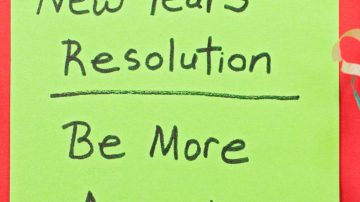 New Year's
Resolution
Be More